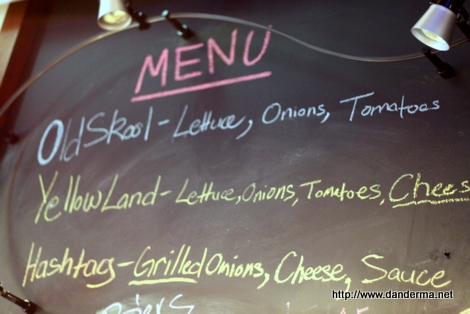 MENU
Old Skool - Lettuce, Onions, Tomatoes
Yellow Land - Lettuce, Onions, Tomatoes, Chees
Hashtag - Grilled Onions, Cheese, Sauce
http://www.danderma.net